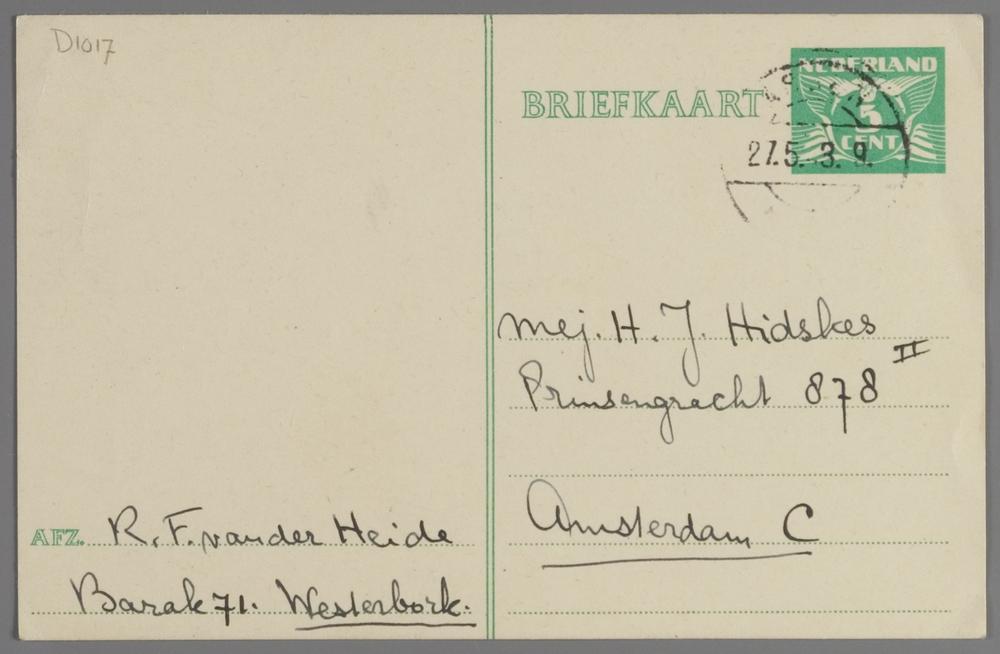 D1017
BRIEFKAART
NEDERLAND
5
CENT
27.5. 3. 9.
Mej. H. J. Hidskes
Prinsengracht 878 II
Amsterdam C
AFZ. R. F. van der Heide
Barak 71. Westerbork.